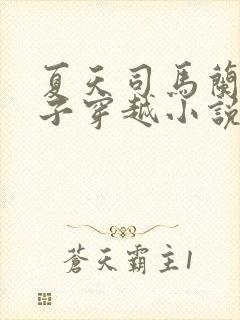 夏天司馬蘭
子穿越小說
蒼天霸主1